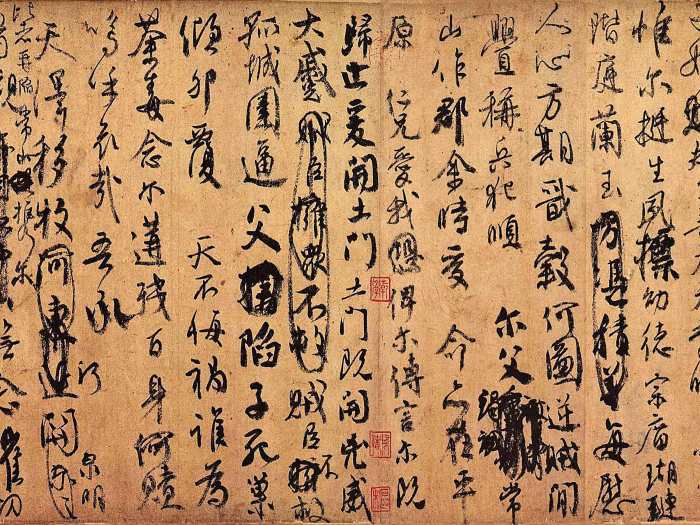 惟尔挺生夙標幼德宗廟瑚璉
階庭蘭玉方憑積善每慰
人心方期戩穀何圖逆賊閒
釁稱兵犯順 尔父 常
山作郡余時受 命亦在平
原 仁兄愛我恐俾尔傳言尔既
歸止爰開土門土門既開凶威
大蹙賊臣擁衆不救賊臣不擁救
孤城圍逼父擒陷子死巢
傾卵覆 天不悔禍誰為
荼毒念尔遘殘百身何贖
嗚呼哀哉吾承
天澤移牧河東近河關泉明
比者再陷常山